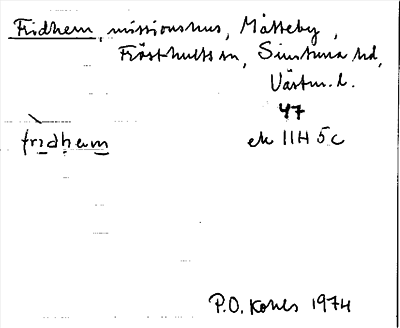 Fridhem, missionshus, Måtteby,
Frösthults sn, Simtuna hd,
Västm. l.
47
fridhem ek 11H 5c
P.O. 1974